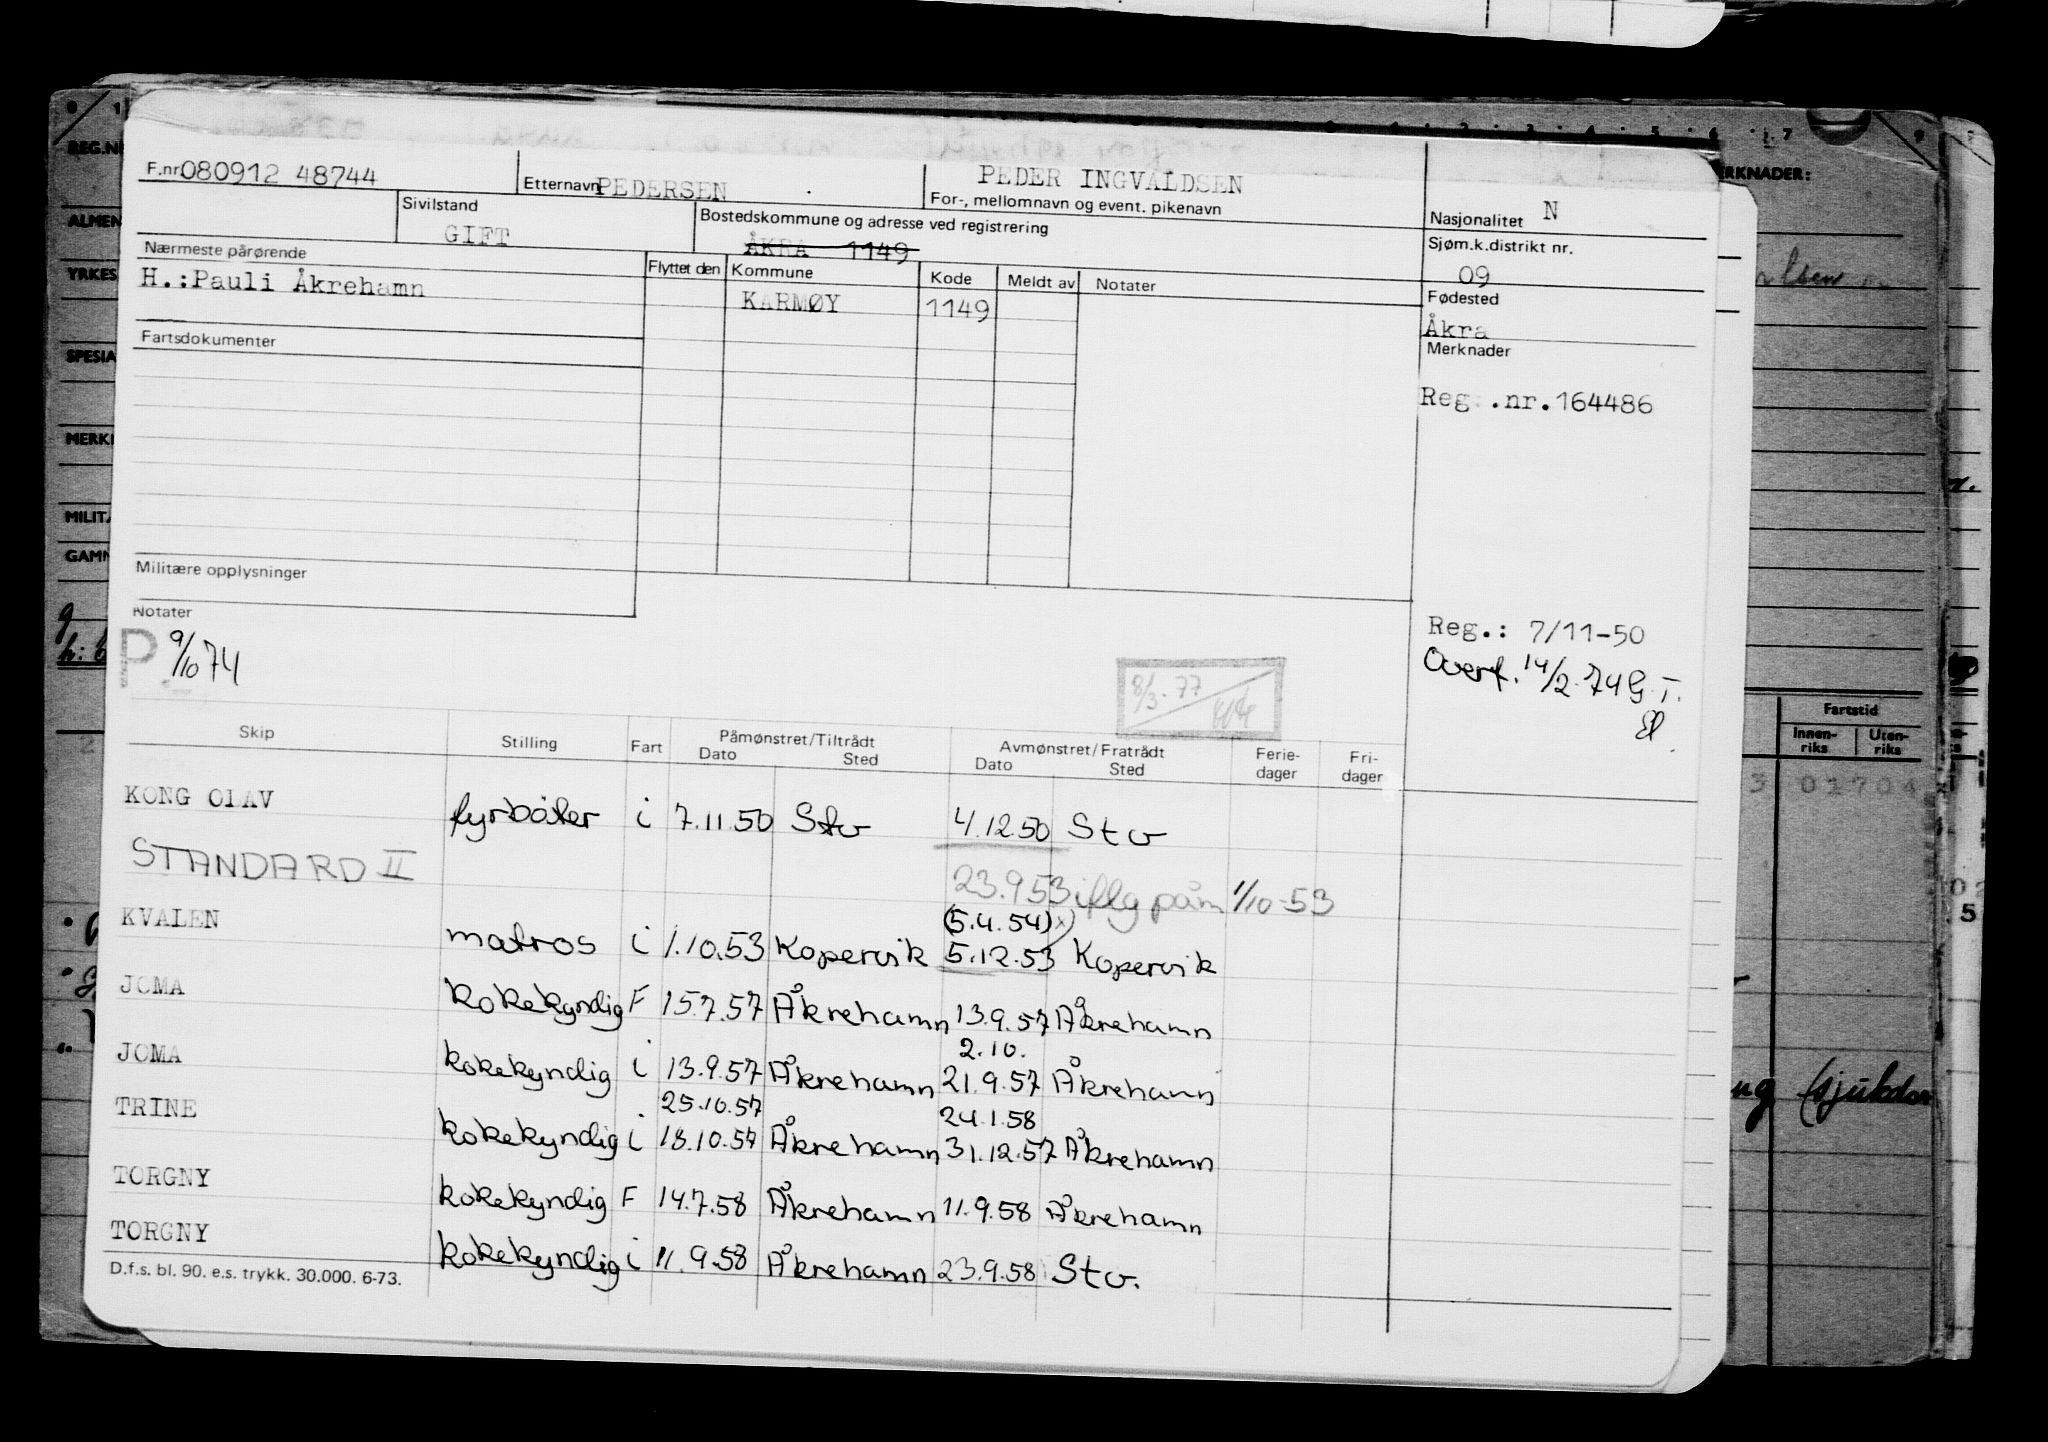 F.nr. 080912 48744
Etternavn PEDERSEN
PEDER INGVALDSEN
For-, mellomnavn og event. pikenavn
Nasjonalitet N
Sivilstand
GIFT
Bostedskommune og adresse ved registrering
ÅKRA 1149
Sjøm.k.distrikt nr.
09
Nærmeste pårørende
H.:Pauli Åkrehamn
Flyttet den Kommune Kode Meldt av Notater
KARMØY 1149
Fødested
Åkra
Fartsdokumenter
Merknader
Reg .nr.164486
Militære opplysninger
Notater
P 9/10 74
8/3-77
Reg.: 7/11-50
Overf. 14/2-74 G.T.
Skip Stilling Fart Påmønstret/Tiltrådt Dato Sted Avmønstret/Fratrådt Dato Sted Ferie-dager Fri-dager
KONG OLAV fyrbøter i 7.11.50 Stv 4.12.50 Stv
STANDARD II 23.9.53 iflg påm 1/10-53
(5.4.54) x)
KVALEN matros i 1.10.53 Kopervik 5.12.53 Kopervik
JOMA kokekyndig F 15.7.57 Åkrehamn 13.9.57 Åkrehamn
2.10.
JOMA kokekyndig i 13.9.57 Åkrehamn 21.9.57 Åkrehamn
25.10.57 24.1.58
TRINE kokekyndig i 18.10.57 Åkrehamn 31.12.57 Åkrehamn
TORGNY kokekyndig F 14.7.58 Åkrehamn 11.9.58 Åkrehamn
TORGNY kokekyndig i 11.9.58 Åkrehamn 23.9.58 Stv.
D.f.s. bl. 90. e.s. trykk. 30.000. 6-73.
Fartstid
Innen-riks Uten-riks
01704